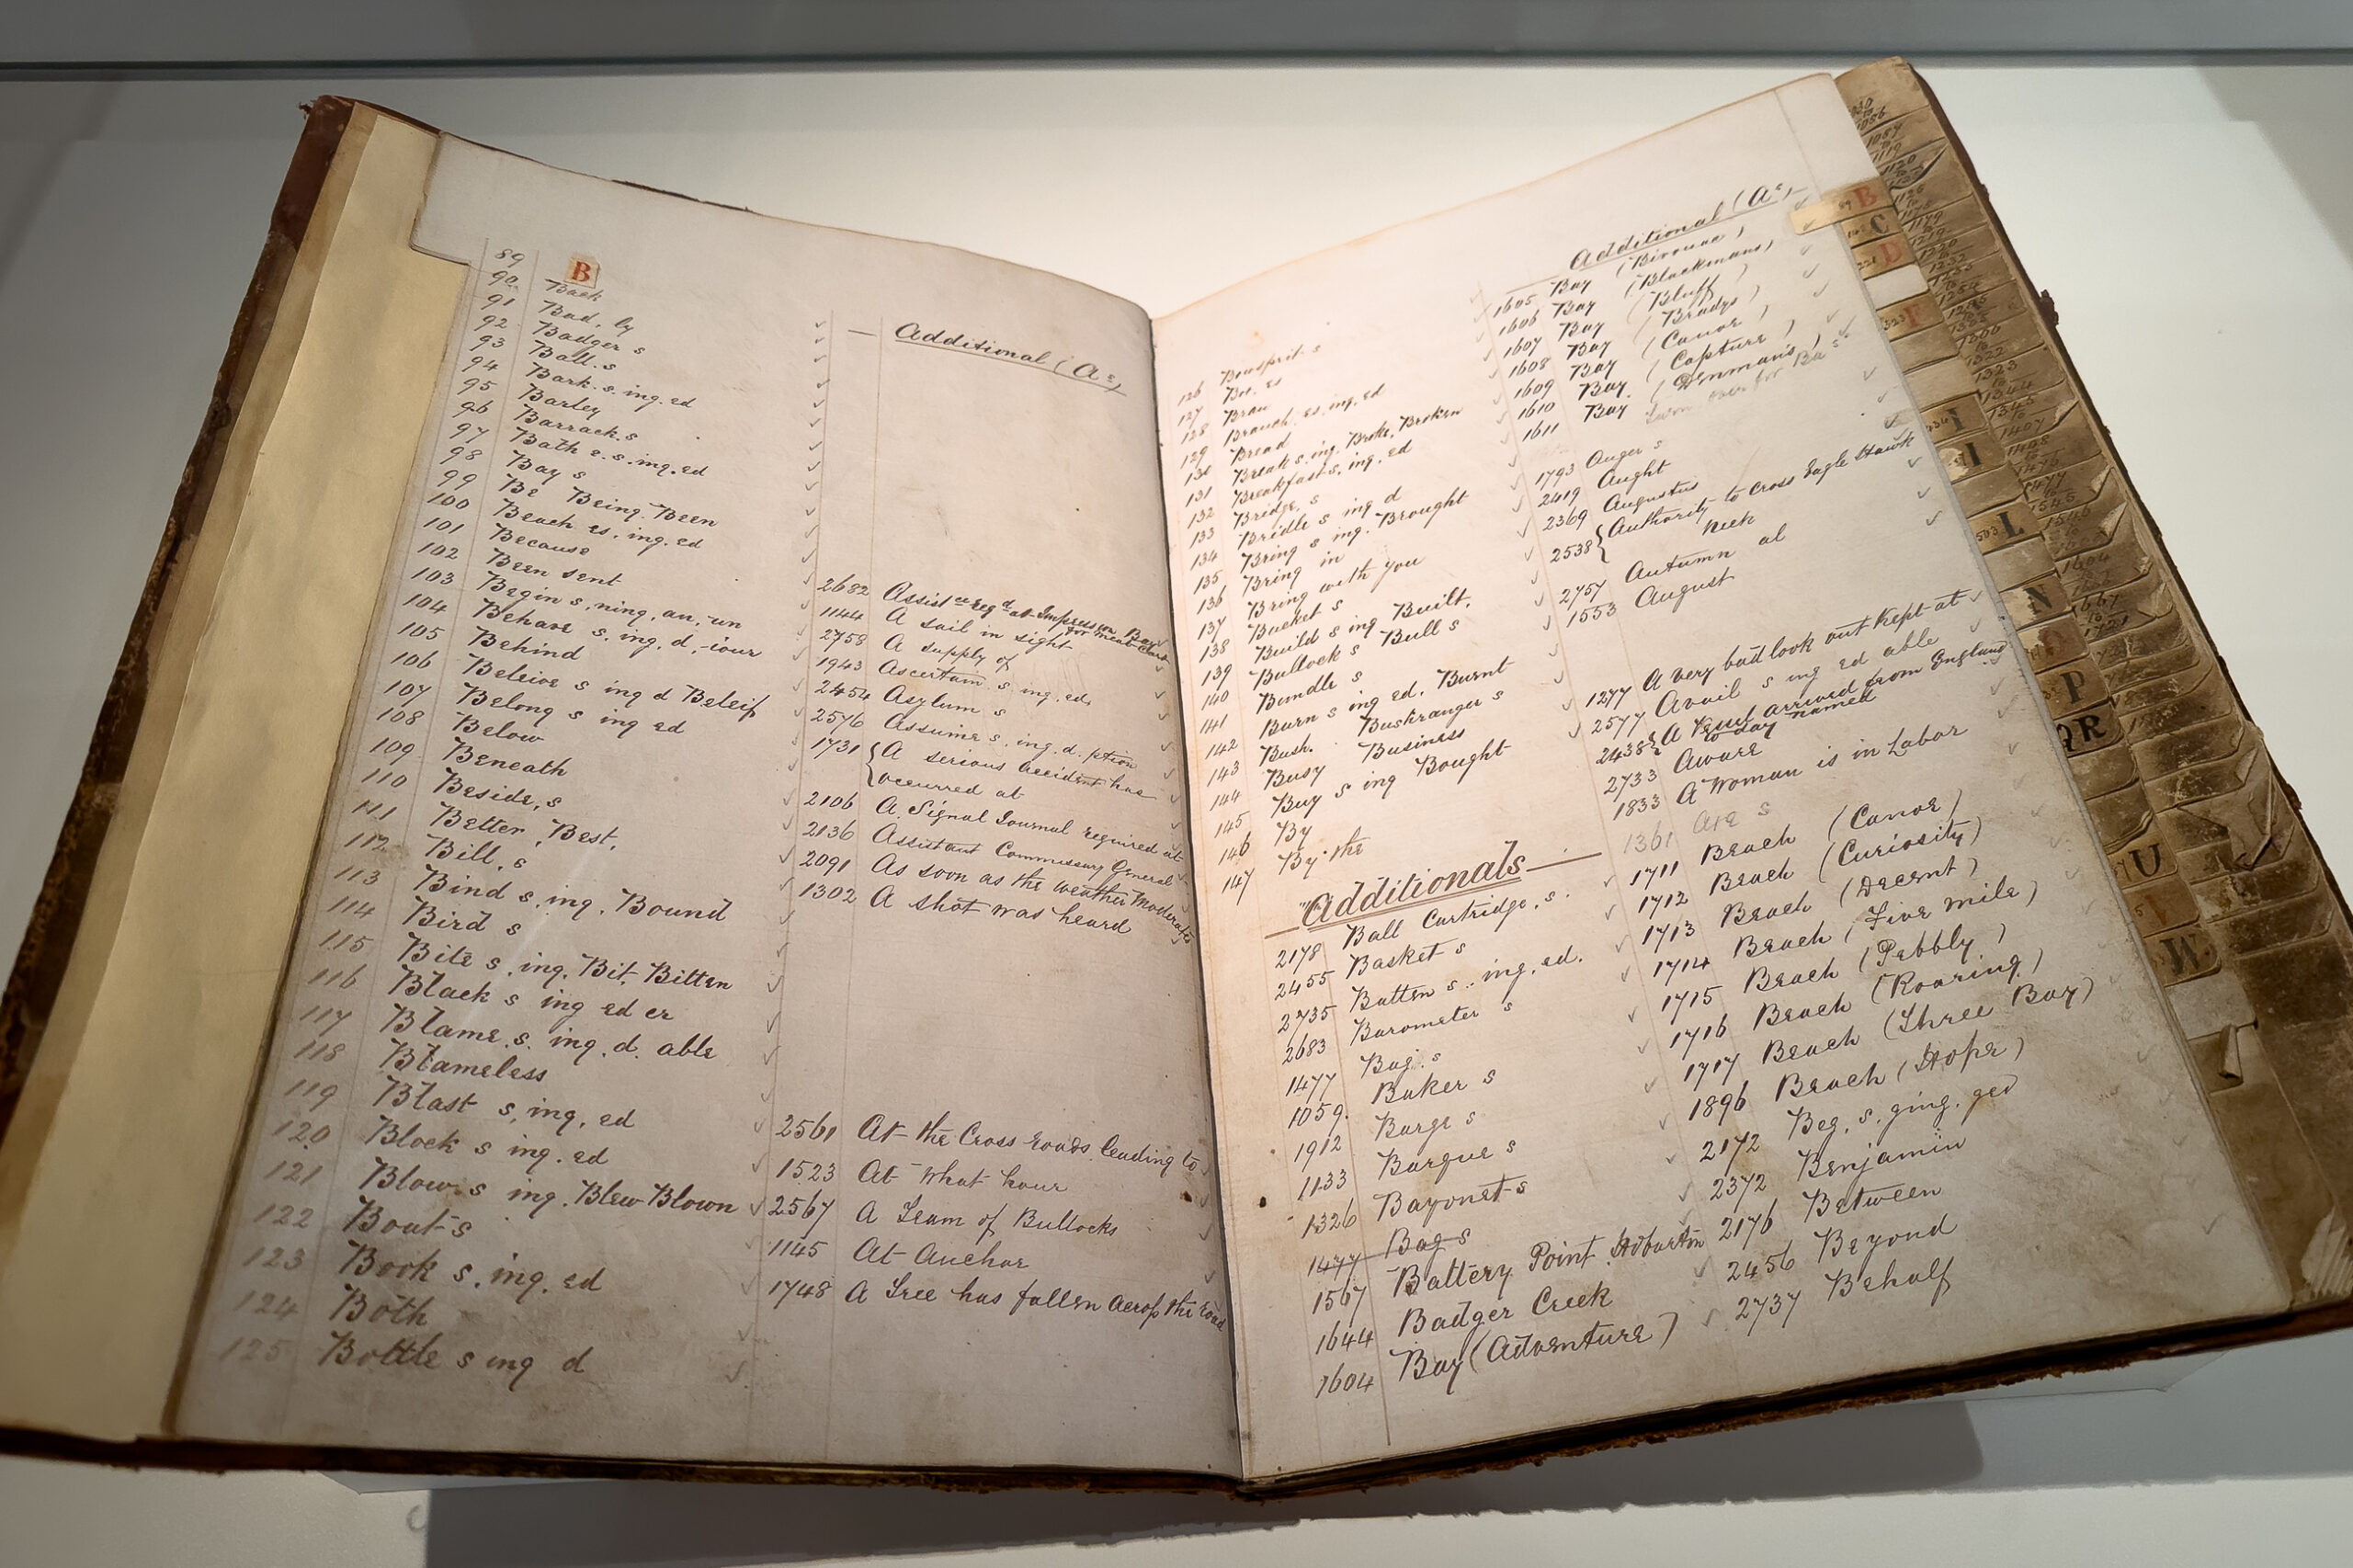 B
89 Back
90 Bad, ly
91 Badger s
92 Ball. s
93 Bark. s. ing. ed
94 Barley
95 Barrack. s
96 Bath e. s. ing. ed
97 Bay s
98 Be Being Been
99 Beach es. ing. ed
100 Because
101 Been sent
102 Begin s, ning, an, un
103 Behave s, ing, d, -iour
104 Behind
105 Beleive s ing d Beleif
106 Belong s ing ed
107 Below
108 Beneath
109 Beside, s
110 Better, Best,
111 Bill, s
112 Bind s, ing, Bound
113 Bird s
114 Bite s, ing, Bit, Bitten
115 Black s ing ed er
116 Blame. s. ing. d. able
117 Blameless
118 Blast s, ing, ed
119 Block s ing. ed
120 Blow s ing. Blew Blown
121 Boat s
122 Book s. ing. ed
123 Both
124 Bottle s ing d
125
Additional (As)
2682 Assistce Reqd at Impression Bay
1144 A sail in sight
2758 A supply of
1943 Ascertain s. ing. ed.
2454 Asylum s
2576 Assume s. ing. d. ption
1731 { A serious accident has
occurred at
2106 A Signal Journal required at
2136 Assistant Commissary General
2091 As soon as the weather Moderates
1302 A shot was heard
2561 At the Cross roads leading to
1523 At what hour
2567 A Team of Bullocks
1145 At Anchor
1748 A Tree has fallen across the road
126 Bowsprit s
127 Box. es
128 Bran
129 Branch es. ing. ed
130 Bread
131 Break s. ing. Broke, Broken
132 Breakfast s, ing, ed
133 Bridge, s
134 Bridle s ing d
135 Bring s ing. Brought
136 Bring in
137 Bring with you
138 Bucket s
139 Build s ing Built.
140 Bullock s Bull s
141 Bundle s
142 Burn s ing ed. Burnt
143 Bush. Bushranger s
144 Busy Business
145 Buy s ing Bought
146 By
147 By the
"Additionals
2178 Ball Cartridge. s.
2455 Basket s
2735 Batten s. ing. ed.
2683 Barometer s
1477 Bag. s
1059. Baker s
1912 Barge s
1133 Barque s
1326 Bayonet s
1477 Bag s
1567 Battery Point. Hobarton
1644 Badger Creek
1604 Bay (Adventure)
Additional (As)
1605 Bay (Bivouac)
1606 Bay (Blackmans)
1607 Bay (Bluff)
1608 Bay (Bradys)
1609 Bay (Canoe)
1610 Bay (Capture)
1611 Bay (Denmans)
1793 Auger s
2419 Aught
2369 Augustus
2538 { Authority to cross Eagle Hawk
Neck
2757 Autumn al
1553 August
1277 A very bad look out kept at
2577 Avail s ing ed able
2438 { A Vessel arrived from England
to day named
2733 Aware
1833 A Woman is in Labor
1361 Axe s
1711 Beach (Canoe)
1712 Beach (Curiosity)
1713 Beach (Decent)
1714 Beach (Five mile)
1715 Beach (Pebbly)
1716 Beach (Roaring)
1717 Beach (Three Bay)
1896 Beach (Hope)
2172 Beg. s. ging. ged
2372 Benjamin
2176 Between
2456 Beyond
2737 Behalf
B
C
D
F
I
L
N
P
QR
U
W